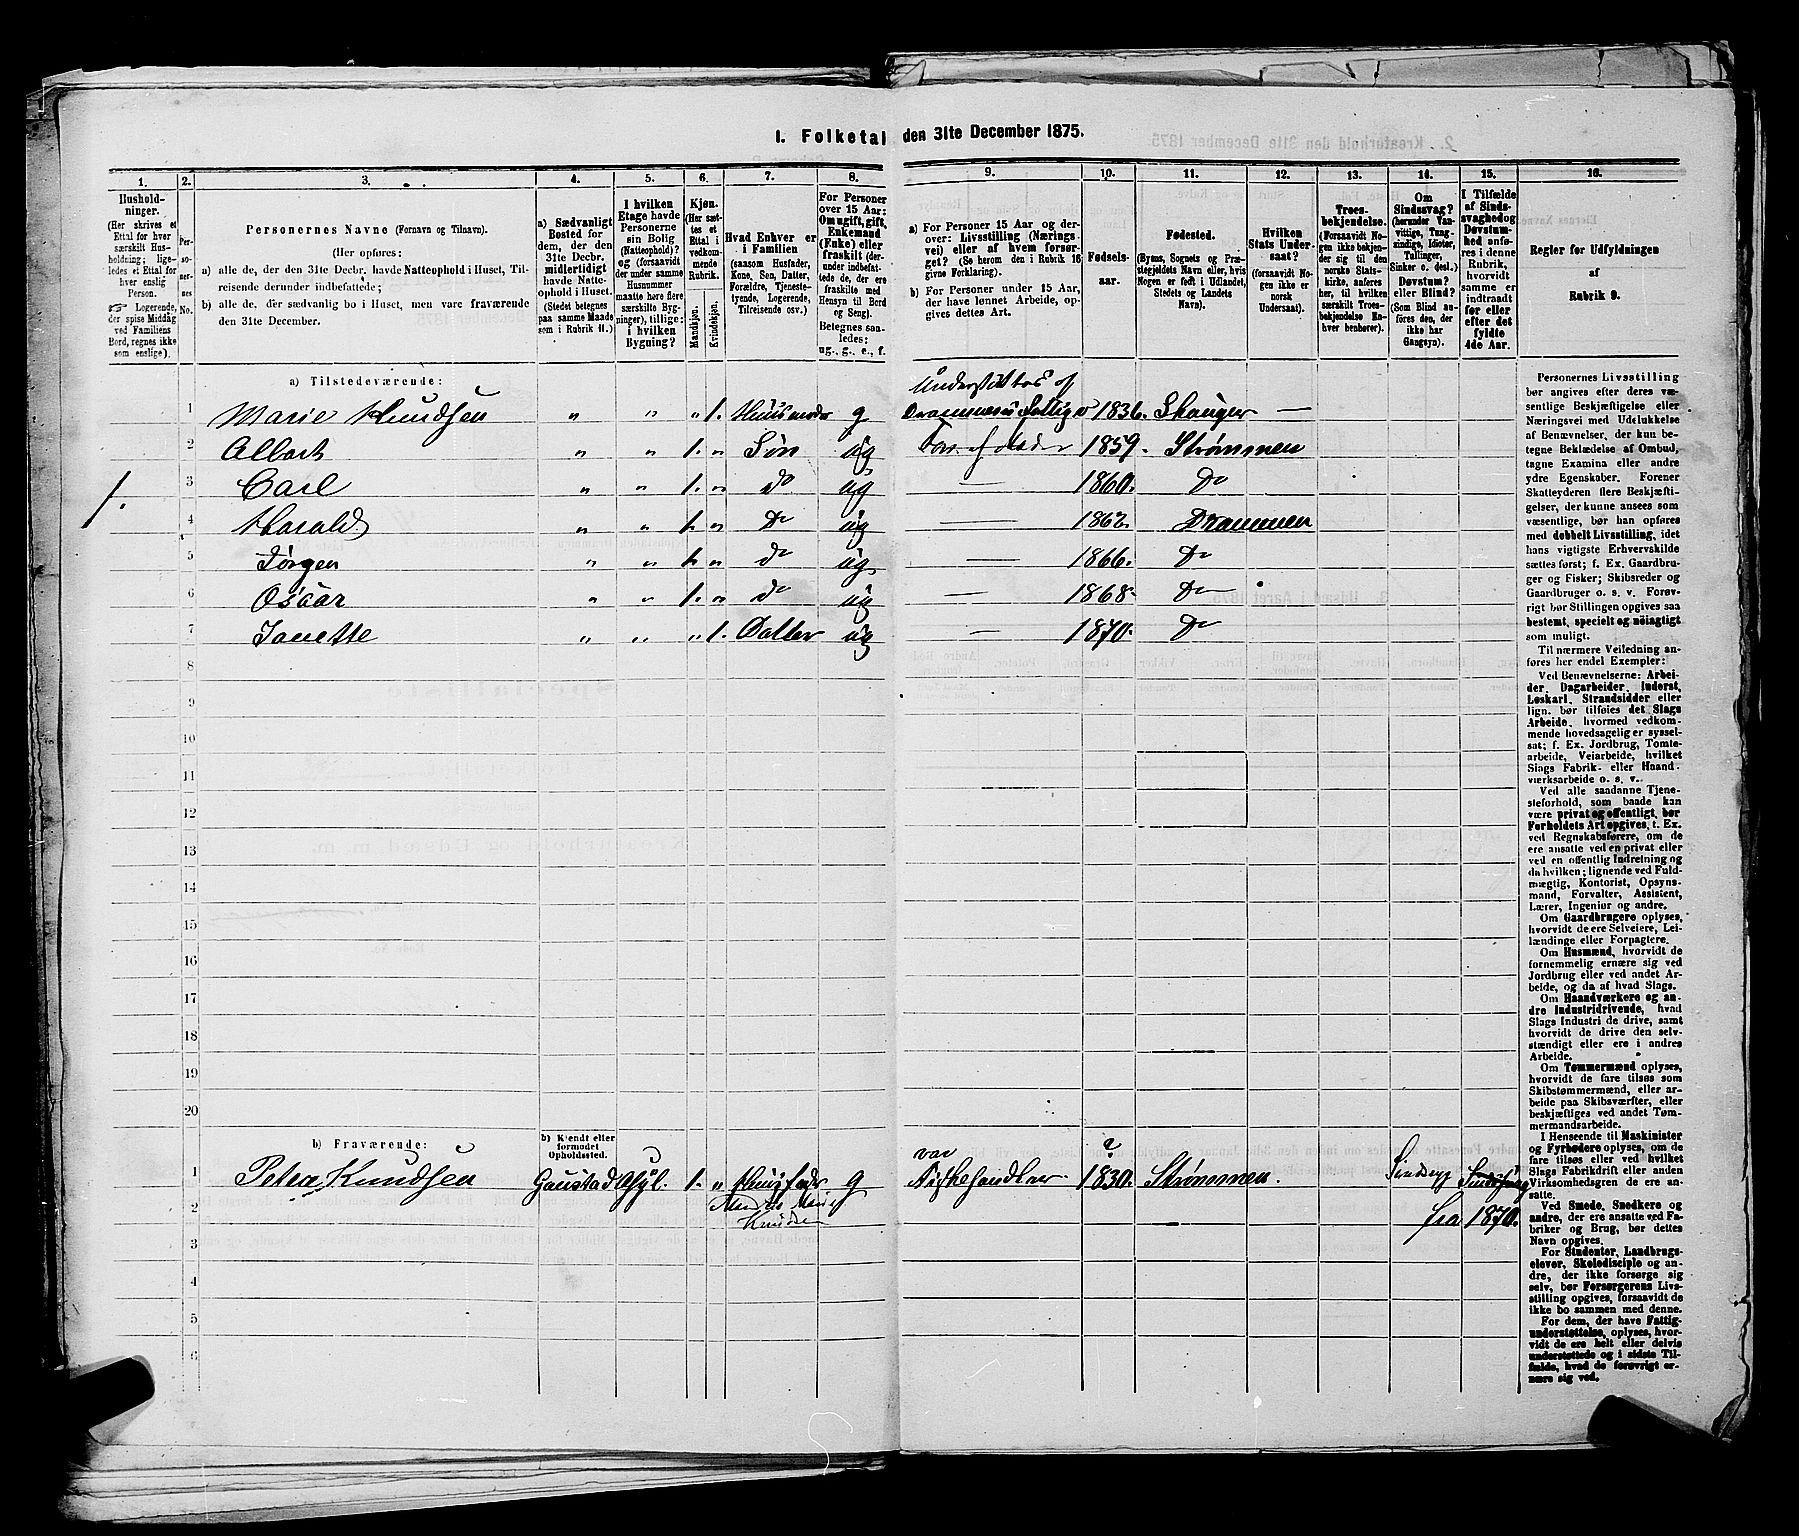 1. Folketal den 31te December 1875.
1.
2.
3.
4.
5.
6.
7.
8.
9.
10.
11.
12.
13.
14.
15.
16.
Hushold-
ninger.
(Her skrives et
Ettal for hver
særskilt Hus-
holdning; lige-
ledes et Ettal for
hver enslig
Person.
☞ Logerende,
der spise Middag
ved Familiens
Bord, regnes ikke
som enslige).
Per-
so-
ner-
nes
No.
Personernes Navne (Fornavn og Tilnavn).
(Her opføres:
a) alle de, der den 31te Decbr. havde Natteophold i Huset, Til-
reisende derunder indbefattede;
b) alle de, der sædvanlig bo i Huset, men vare fraværende
den 31te December.
a) Sædvanligt
Bosted for
dem, der den
31te Decbr.
midlertidigt
havde Natte-
ophold i Huset.
(Stedet betegnes
paa samme Maade
som i Rubrik 11.)
I hvilken
Etage havde
Personerne
sin Bolig
(Natteophold)?
og (forsaavidt
der under samme
Husnummer
maatte høre flere
særskilte Byg-
ninger), tillige:
i hvilken
Bygning?
Kjøn.
(Her sæt-
tes et
Ettal i
vedkom-
mende
Rubrik.
Mandkjøn.
Kvindekjøn.
Hvad Enhver er
i Familien
(saasom Husfader,
Kone, Søn, Datter,
Forældre, Tjeneste-
tyende, Logerende,
Tilreisende osv.)
For Personer
over 15 Aar:
Om ugift, gift,
Enkemand
(Enke) eller
fraskilt (der-
under indbefat-
tede de, der ere
fraskilte med
Hensyn til Bord
og Seng).
Betegnes saa-
ledes:
ug., g., e., f.
a) For Personer 15 Aar og der-
over: Livsstilling (Nærings-
vei) eller af hvem forsør-
get? (Se herom den i Rubrik 16
givne Forklaring).
b) For Personer under 15 Aar,
der have lønnet Arbeide, op-
gives dettes Art.
Fødsels-
aar.
Fødested.
(Byens, Sognets og Præ-
stegjeldets Navn eller, hvis
Nogen er født i Udlandet,
Stedets og Landets
Navn).
Hvilken
Stats Under-
saat?
(forsaavidt No-
gen ikke er
norsk
Undersaat).
Troes-
bekjendelse.
(Forsaavidt No-
gen ikke bekjen-
der sig til den
norske Stats-
kirke, anføres
her, til hvilken
særskilt Troes-
bekjendelse En-
hver benhører).
Om
Sindssvag?
(herunder Van-
vittige, Tung-
sindige, Idioter,
Sinker o. desl.)
Døvstum?
eller Blind?
(Som Blind an-
føres den, der
ikke har
Gangsyn).
I Tilfælde
af Sinds-
svaghed og
Døvstum-
hed anfø-
res i denne
Rubrik,
hvorvidt
samme er
indtraadt
før eller
efter det
fyldte
4de Aar.
Regler for Udfyldningen
af
Rubrik 9.
a) Tilstedeværende:
1 Marie Knudsen " " " 1. Husmoder g Understøttes af Drammens Fattigv 1836. Skauger —
2 Albert " " 1. " Søn ug Fors. af Moder 1859. Strømmen
1.
3 Carl " " 1. " do ug — 1860. Do
4 Harald " " 1. " Do ug — 1862. Drammen
5 Jørgen " " 1. " do ug — 1866. Do
6 Oscar " " 1. " do ug — 1868. Do
7 Janette " " " 1. Datter ug — 1870. Do
8
9
10
11
12
13
14
15
16
17
18
19
20
b) Fraværende:
b) Kjendt eller
formodet
Opholdssted.
1 Petra Knudsen Gaustad Asyl. 1. " Husfader g var Fiskehandler 1830. ? Strømmen. Sindssyg
2 Knudsen fra 1870.
3
4
5
6
Personernes Livsstilling
bør angives efter deres væ-
sentlige Beskjæftigelse eller
Næringsvei med Udelukkelse
af Benævnelser, der kun be-
tegne Beklædelse af Ombud,
tagne Examina eller andre
ydre Egenskaber. Forener
Skatteyderen flere Beskjæfti-
gelser, der kunne ansees som
væsentlige, bør han opføres
med dobbelt Livsstilling, idet
hans vigtigste Erhvervskilde
sættes først; f. Ex. Gaardbru-
ger og Fisker; Skibsreder og
Gaardbruger o. s. v. Forøv-
rigt bør Stillingen opgives saa
bestemt, specielt og nøiagtigt
som muligt.
Til nærmere Veiledning an-
føres her endel Exempler:
Ved Benævnelserne: Arbei-
der, Dagarbeider, Inderst,
Løskarl, Strandsidder eller
lign. bør tilføies det Slags
Arbeide, hvormed vedkom-
mende hovedsagelig er syssel-
sat; f. Ex. Jordbrug, Tomte-
arbeide, Veiarbeide, hvilket
Slags Fabrik- eller Haand-
værksarbeide o. s. v.
Ved alle saadanne Tjene-
steforhold, som baade kan
være privat og offentligt, bør
Forholdets Art opgives, t. Ex.
ved Regnskabsførere, om de
ere ansatte ved en privat eller
ved en offentlig Indretning og
da hvilken; lignende ved Fuld-
mægtig, Kontorist, Opsyns-
mand, Forvalter, Assistent,
Lærer, Ingeniør og andre.
Om Gaardbrugere oplyses,
hvorvidt de ere Selveiere, Lei-
lændinge eller Forpagtere.
Om Husmænd, hvorvidt de
fornemmelig ernære sig ved
Jordbrug eller ved andet Ar-
beide, og da af hvad Slags.
Om Haandværkere og an-
dre Industridrivende, hvad
Slags Industri de drive, samt
hvorvidt de drive den selv-
stændigt eller ere i andres
Arbeide.
Om Tømmermænd oplyses,
hvorvidt de fare tilsøs som
Skibstømmermænd, eller ar-
beide paa Skibsværfter, eller
beskjæftiges ved andet Tøm-
mermandsarbeide.
I Henseende til Maskinister
og Fyrbødere oplyses, om de
fare tilsøs eller ved hvilket
Slags Fabrikdrift eller anden
Virksomhedsgren de ere an-
satte.
Ved Smede, Snedkere og
andre, der ere ansatte ved Fa-
briker og Brug, bør dettes
Navn opgives.
For Studenter, Landbrugs-
elever, Skoledisciple og an-
dre, der ikke forsørge sig
selv, bør Forsørgerens Livs-
stilling opgives, forsaavidt de
ikke bo sammen med denne.
For dem, der have Fattig-
understøttelse, oplyses, hvor-
vidt de ere helt eller delvis
understøttede og i sidste Til-
fælde, hvad de forøvrigt er-
nære sig ved.